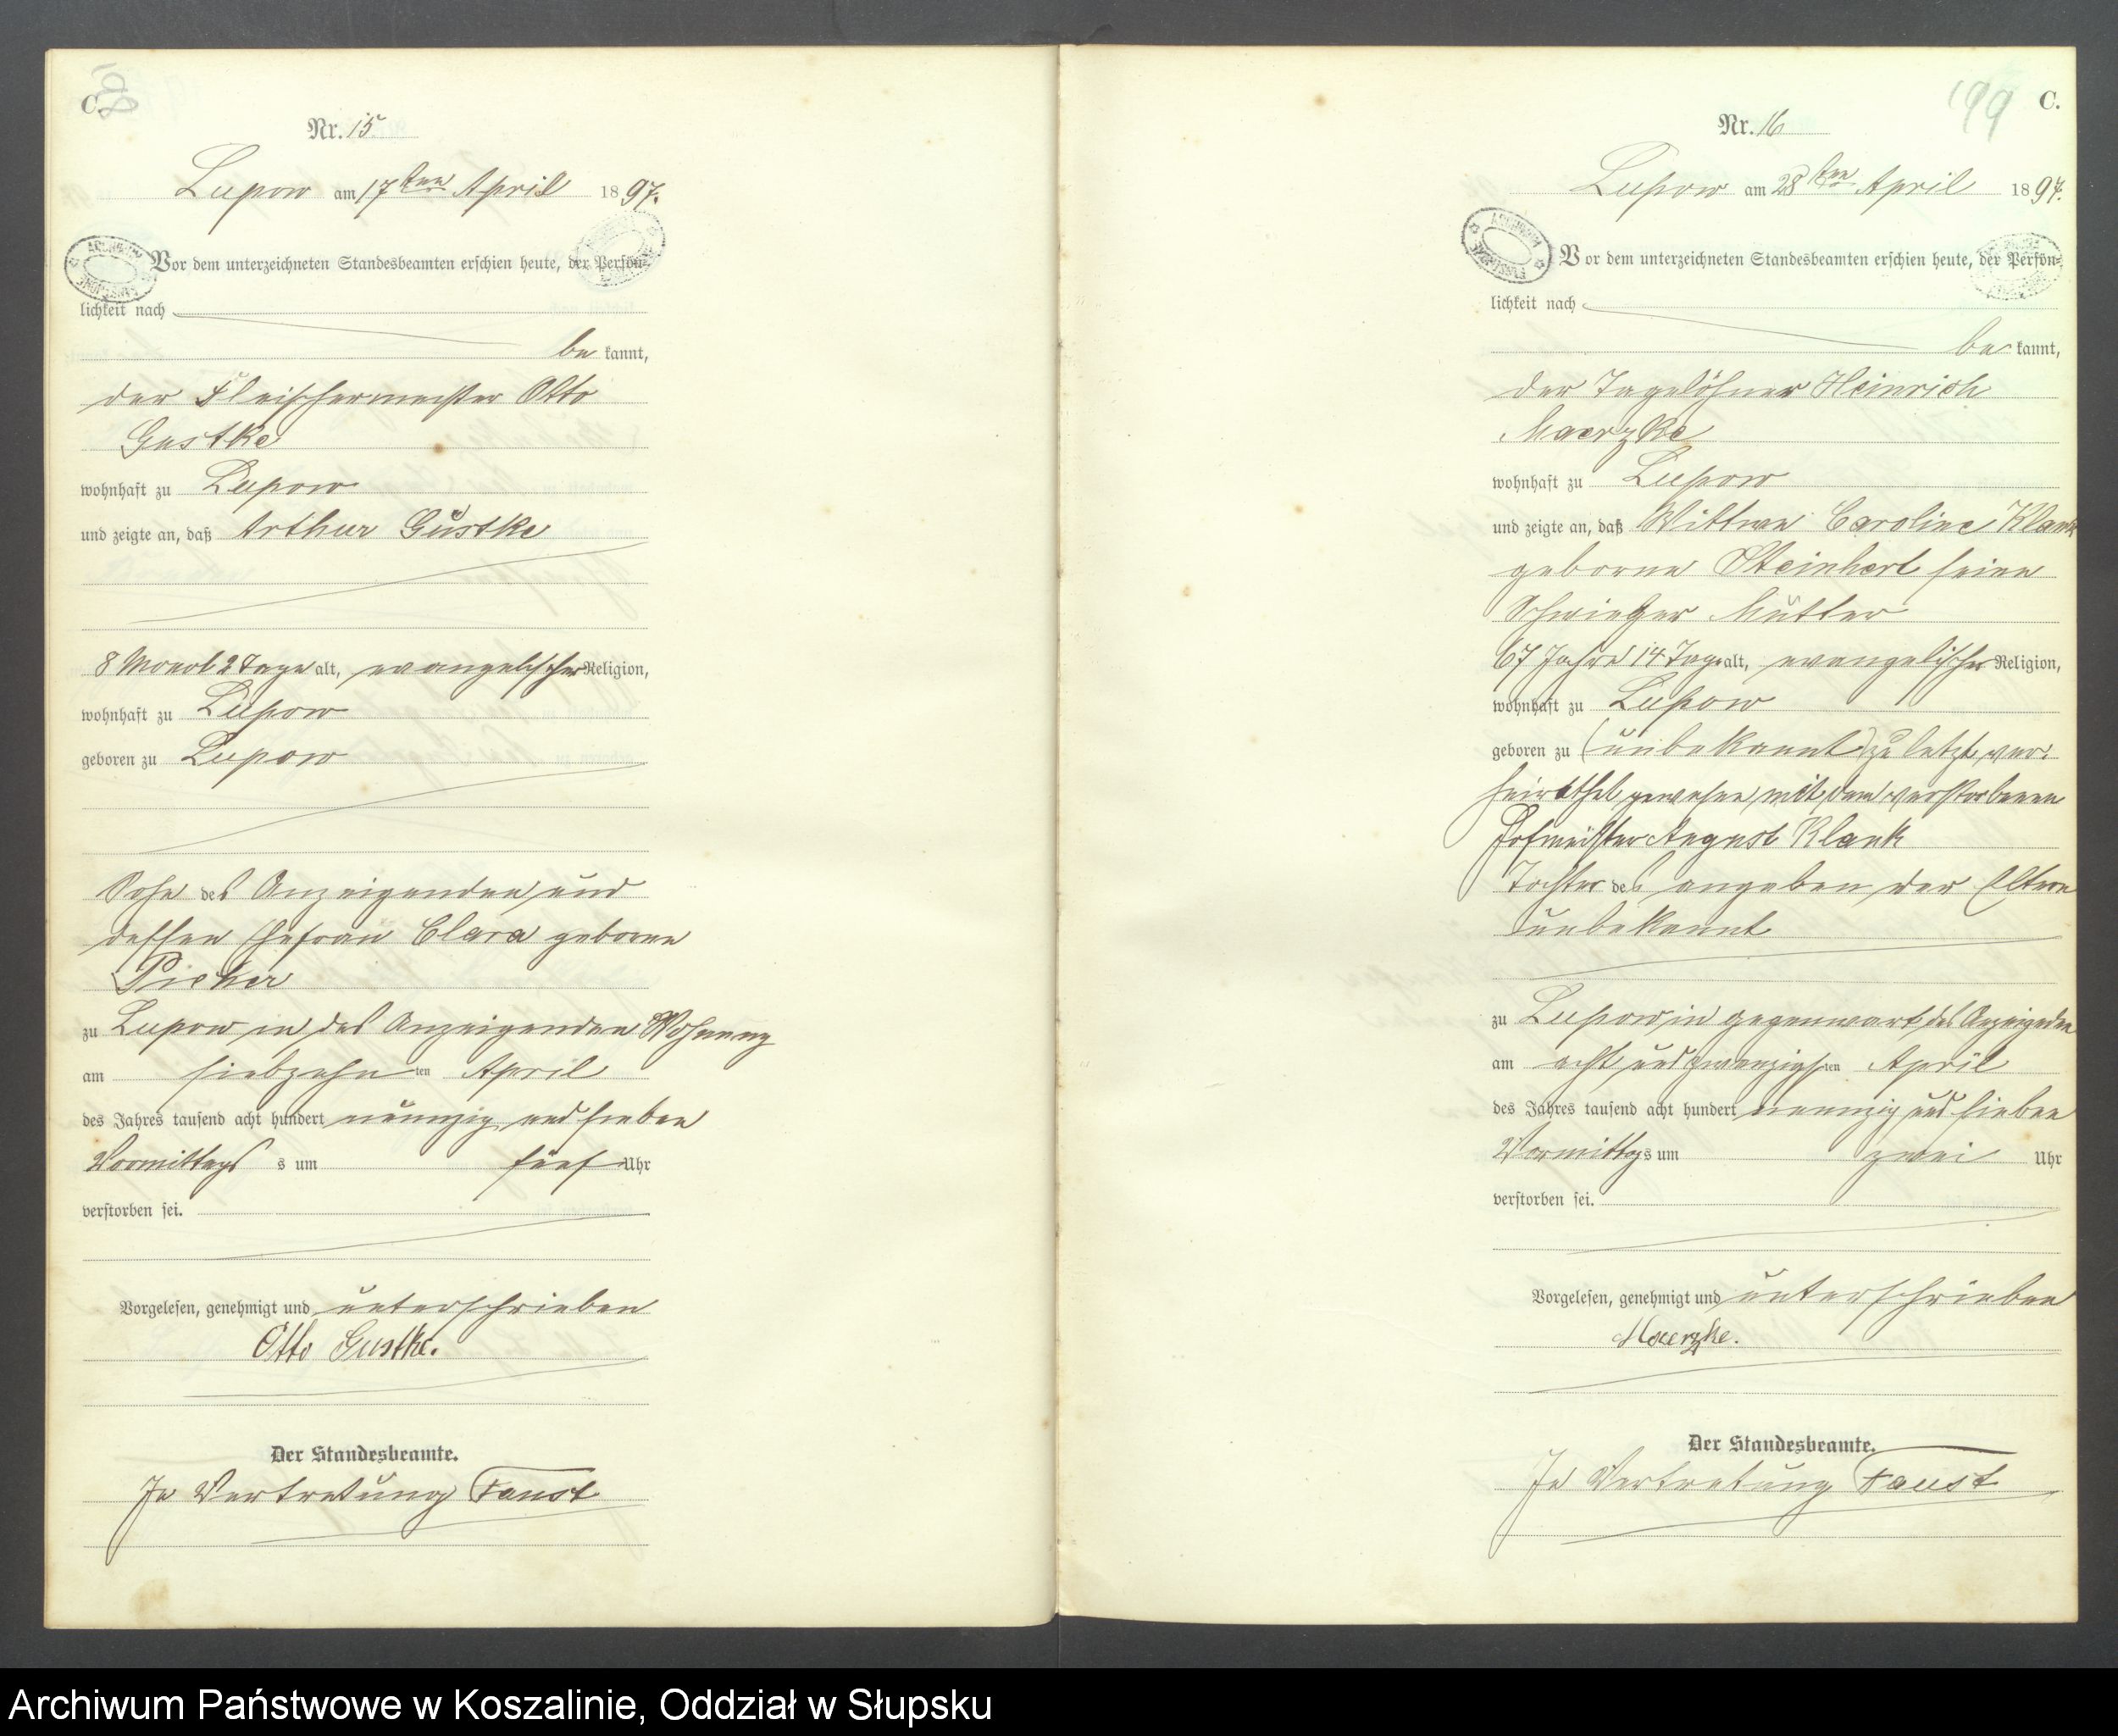 C.
198
Nr. 15
Lupow am 17ten April 1897.
Vor dem unterzeichneten Standesbeamten erschien heute, der Persön-
lichkeit nach
be kannt,
der Fleischermeister Otto
Gustke
wohnhaft zu Lupow
und zeigte an, daß Arthur Gustke
8 Monat 2 Tage alt, evangelischer Religion,
wohnhaft zu Lupow
geboren zu Lupow
Sohn des Anzeigenden und
dessen Ehefrau Clara geborne
Picker
zu Lupow in des Anzeigenden Wohnung
am siebzehnten April
des Jahres tausend acht hundert neunzig und sieben
Vormittags s um fünf Uhr
verstorben sei.
Vorgelesen, genehmigt und unterschrieben
Otto Gustke.
Der Standesbeamte.
In Vertretung Faust
199 C.
Nr. 16
Lupow am 28ten April 1897.
Vor dem unterzeichneten Standesbeamten erschien heute, der Persön-
lichkeit nach
be kannt,
der Tagelöhner Heinrich
Maerzke
wohnhaft zu Lupow
und zeigte an, daß Wittwe Caroline Klank
geborne Steinhorl seine
Schwieger Mutter
67 Jahre 14 Tage alt, evangelischer Religion,
wohnhaft zu Lupow
geboren zu (unbekannt) zu letzt ver-
heirathet gewesen mit dem verstorbenen
Hofmeister August Klank
Tochter des angeben der Eltern
unbekannt
zu Lupow in gegenwart des Anzeigenden
am acht und zwanzigsten April
des Jahres tausend acht hundert neunzig und sieben
Vormittags um zwei Uhr
verstorben sei.
Vorgelesen, genehmigt und unterschrieben
Maerzke.
Der Standesbeamte.
In Vertretung Faust
Archiwum Państwowe w Koszalinie, Oddział w Słupsku